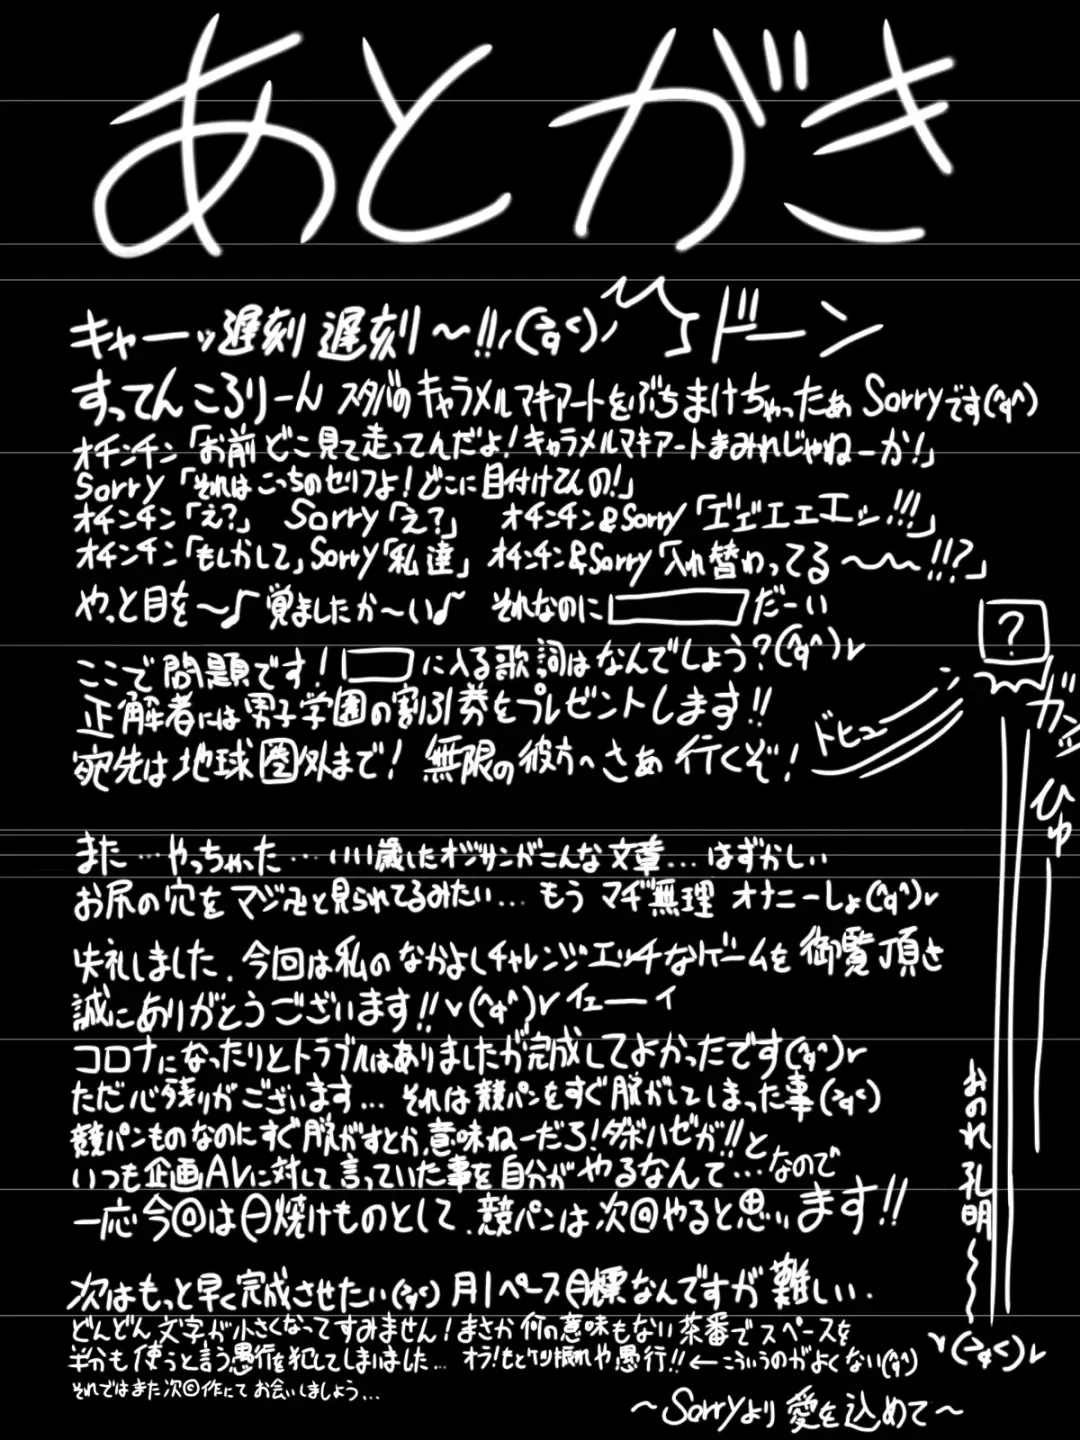 あとがき
キャーッ遅刻 遅刻〜!!
ドーン
すってんころりーん スタバのキャラメルマキアートをぶちまけちゃったぁ Sorryです(^q^)
オチンチン「お前どこ見て走ってんだよ!キャラメルマキアートまみれじゃねーか!」
Sorry「それはこっちのセリフよ!どこに目付けてんの!」
オチンチン「え?」 Sorry「え?」 オチンチン&Sorry「エエエエエッ!!!」
オチンチン「もしかして」Sorry「私達」 オチンチン&Sorry「入れ替わってる〜〜〜!!?」
やっと目を〜♪覚ましたか〜い♪ それなのに□だーい
ここで問題です!□に入る歌詞はなんでしょう?(^q^)v
正解者には男子学園の割引券をプレゼントします!!
宛先は地球圏外まで! 無限の彼方へさあ行くぞ!
ドヒュー
?
ガンッ
ひゅー
おのれ孔明〜
また…やっちゃった…いい歳したオジサンがこんな文章…はずかしい
お尻の穴をマジマジと見られてるみたい…もう マヂ無理 オナニーしょ(^q^)v
失礼しました。今回は私のなかよしチャレンジエッチなゲームを御覧頂き
誠にありがとうございます!!v(^q^)vイェーーイ
コロナになったりとトラブルはありましたが完成してよかったです(^q^)v
ただ心残りがございます… それは競パンをすぐ脱がしてしまった事(>q<)
競パンものなのにすぐ脱がすとか、意味ねーだろ!ダボハゼが!!と
いつも企画AVに対して言っていた事を自分がやるなんて…なので
一応今回は日焼けものとして、競パンは次回やると思います!!
次はもっと早く完成させたい(>q<)月1ペース目標なんですが難しい.
どんどん文字が小さくなってすみません!まさか何の意味もない茶番でスペースを
半分も使うと言う愚行を犯してしまいました… オラ!もとケツ振れや愚行!!←こういうのがよくない(^q^)
v(>q<)v
それではまた次回作にてお会いしましょう…
〜Sorryより愛を込めて〜